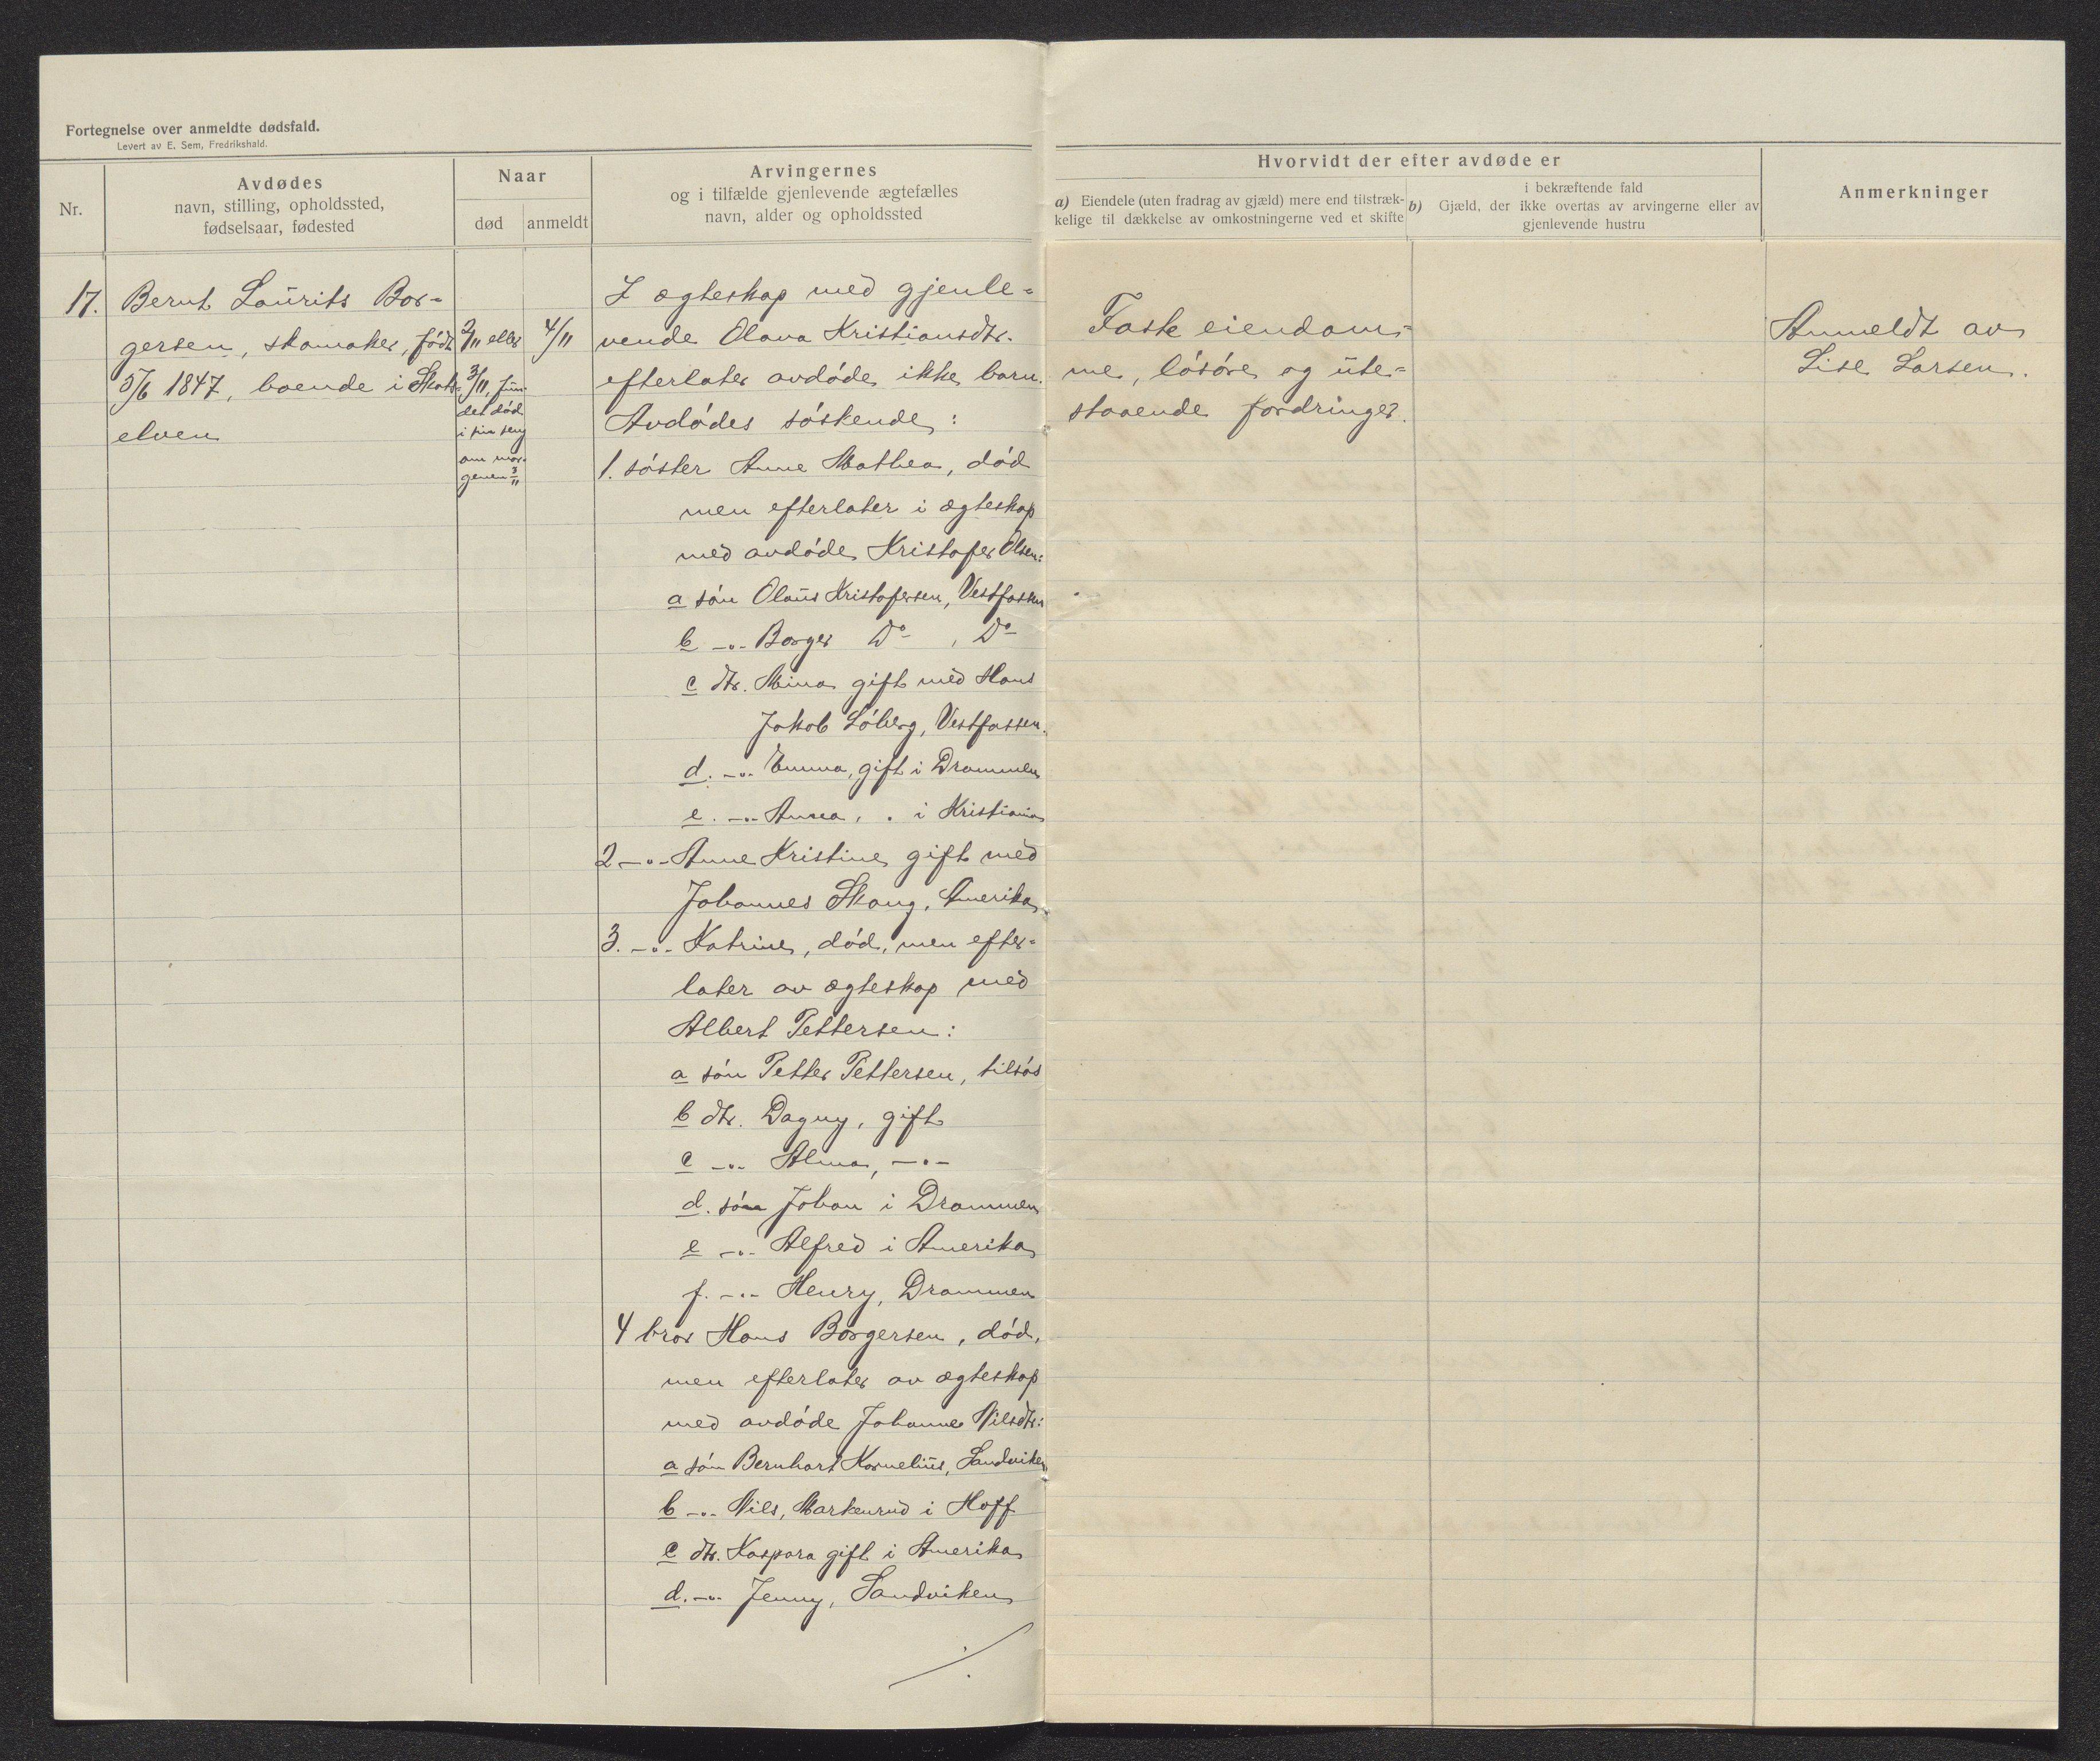 Fortegnelse over anmeldte dødsfald.
Levert av E. Sem, Fredrikshald.
Nr.
Avdødes
navn, stilling, opholdssted,
fødselsaar, fødested
Naar
død
anmeldt
Arvingernes
og i tilfælde gjenlevende ægtefælles
navn, alder og opholdssted
Hvorvidt der efter avdøde er
a) Eiendele (uten fradrag av gjæld) mere end tilstræk-
kelige til dækkelse av omkostningerne ved et skifte
i bekræftende fald
b) Gjæld, der ikke overtas av arvingerne eller av
gjenlevende hustru
Anmerkninger
17.
Bernt Laurits Bor=
gersen, skomaker, født
5/6 1847, boende i Skots-
elven
2/11 eller
3/11, fun-
det død
i sin seng
om mor-
genen 3/11
4/11
I ægteskap med gjenle=
vende Olava Kristiansdtr.
efterlater avdøde ikke barn.
Avdødes søskende:
1. søster Anne Mathea, død
men efterlater i ægteskap
med avdøde Kristofer Olsen:
a søn Olaus Kristofersen, Vestfossen
b -"- Borger Do , Do
c dtr. Mina gift med Hans
Jakob Løberg, Vestfossen.
d. -"- Emma, gift i Drammen
e. -"- Anna, " i Kristiania
2 -"- Anne Kristine gift med
Johannes Skaug, Amerika.
3. -"- Katrine, død, men efter=
later av ægteskap med
Albert Pettersen:
a søn Petter Pettersen, tilsøs
b dtr. Dagny, gift
c -"- Alma, -"-
d. søn Johan i Drammen
e -"- Alfred i Amerika
f. -"- Henry, Drammen
4 bror Hans Borgersen, død,
men efterlater av ægteskap
med avdøde Johanne Nilsdtr:
a søn Bernhart Kornelius, Sandviken
b -"- Nils, Markenrud i Hoff
c dtr. Kaspara gift i Amerika
d. -"- Jenny, Sandviken
./.
Faste eiendom=
me, løsøre og ute=
staaende fordringer.
Anmeldt av
Lise Larsen.